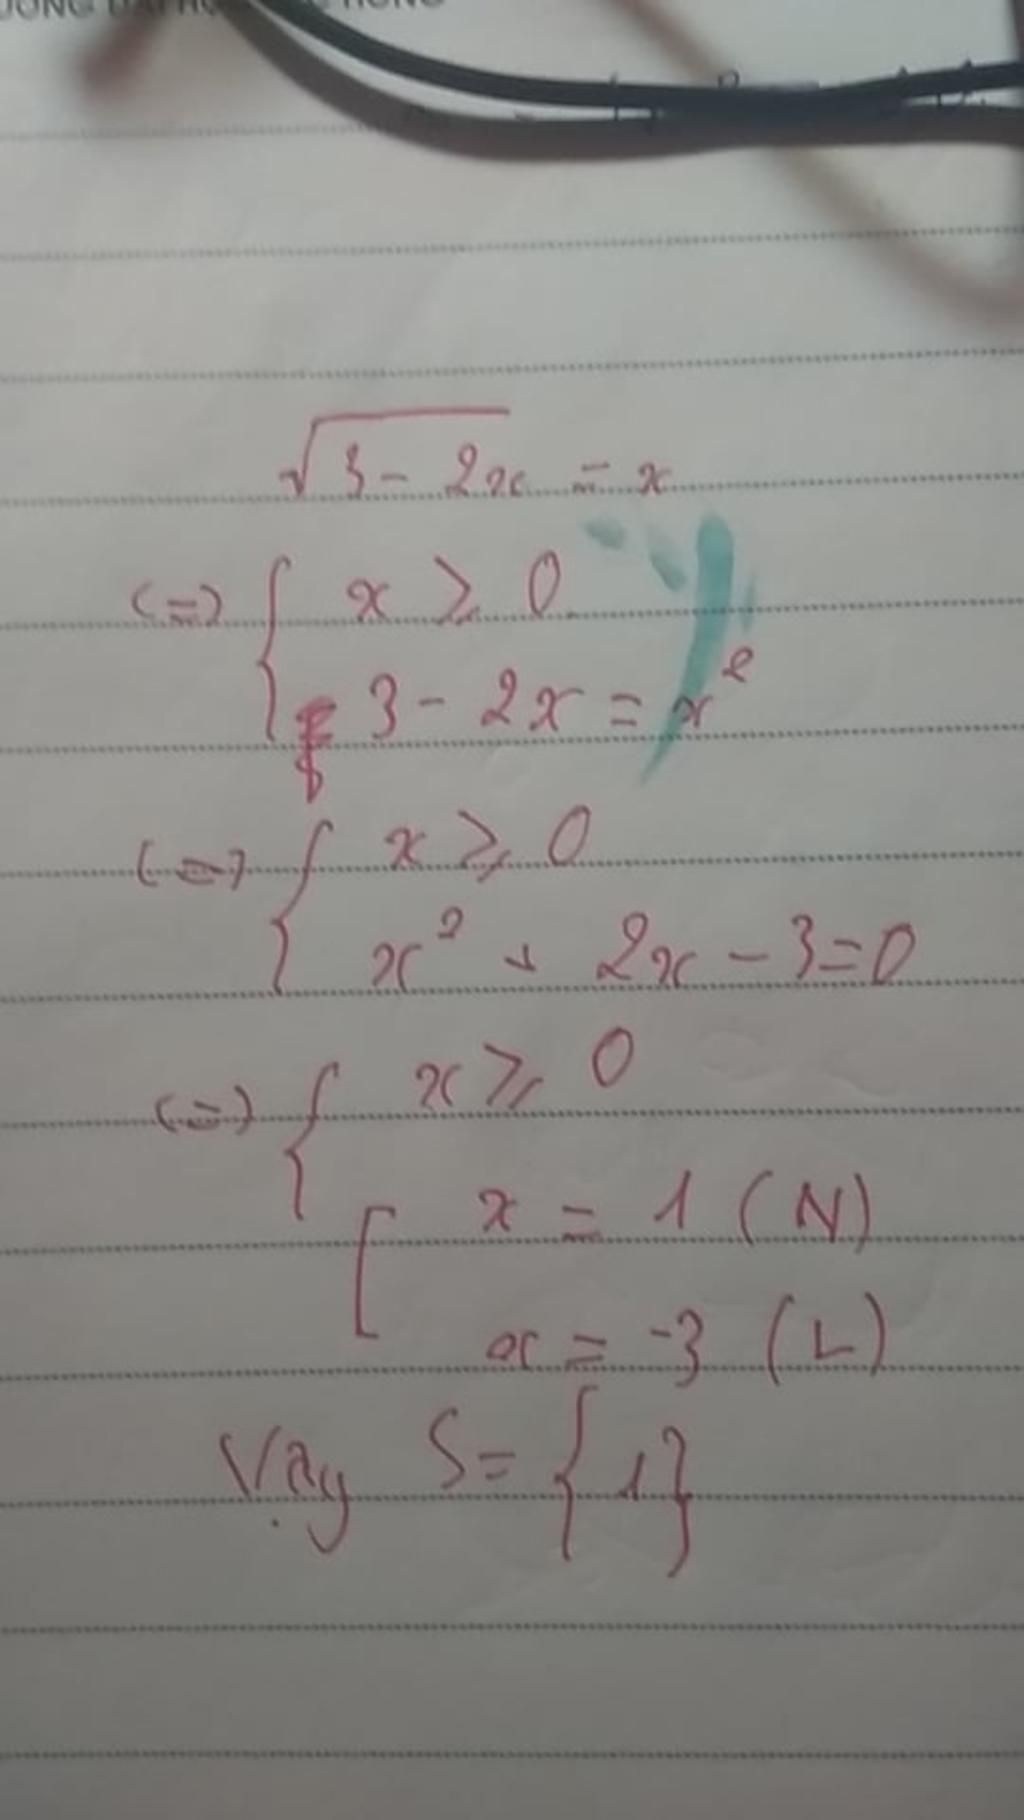 √3 - 2x = x
<=> { x ≥ 0
3 - 2x = x²
<=> { x ≥ 0
x² + 2x - 3 = 0
<=> { x ≥ 0
[ x = 1 (N)
x = -3 (L)
Vậy S = {1}